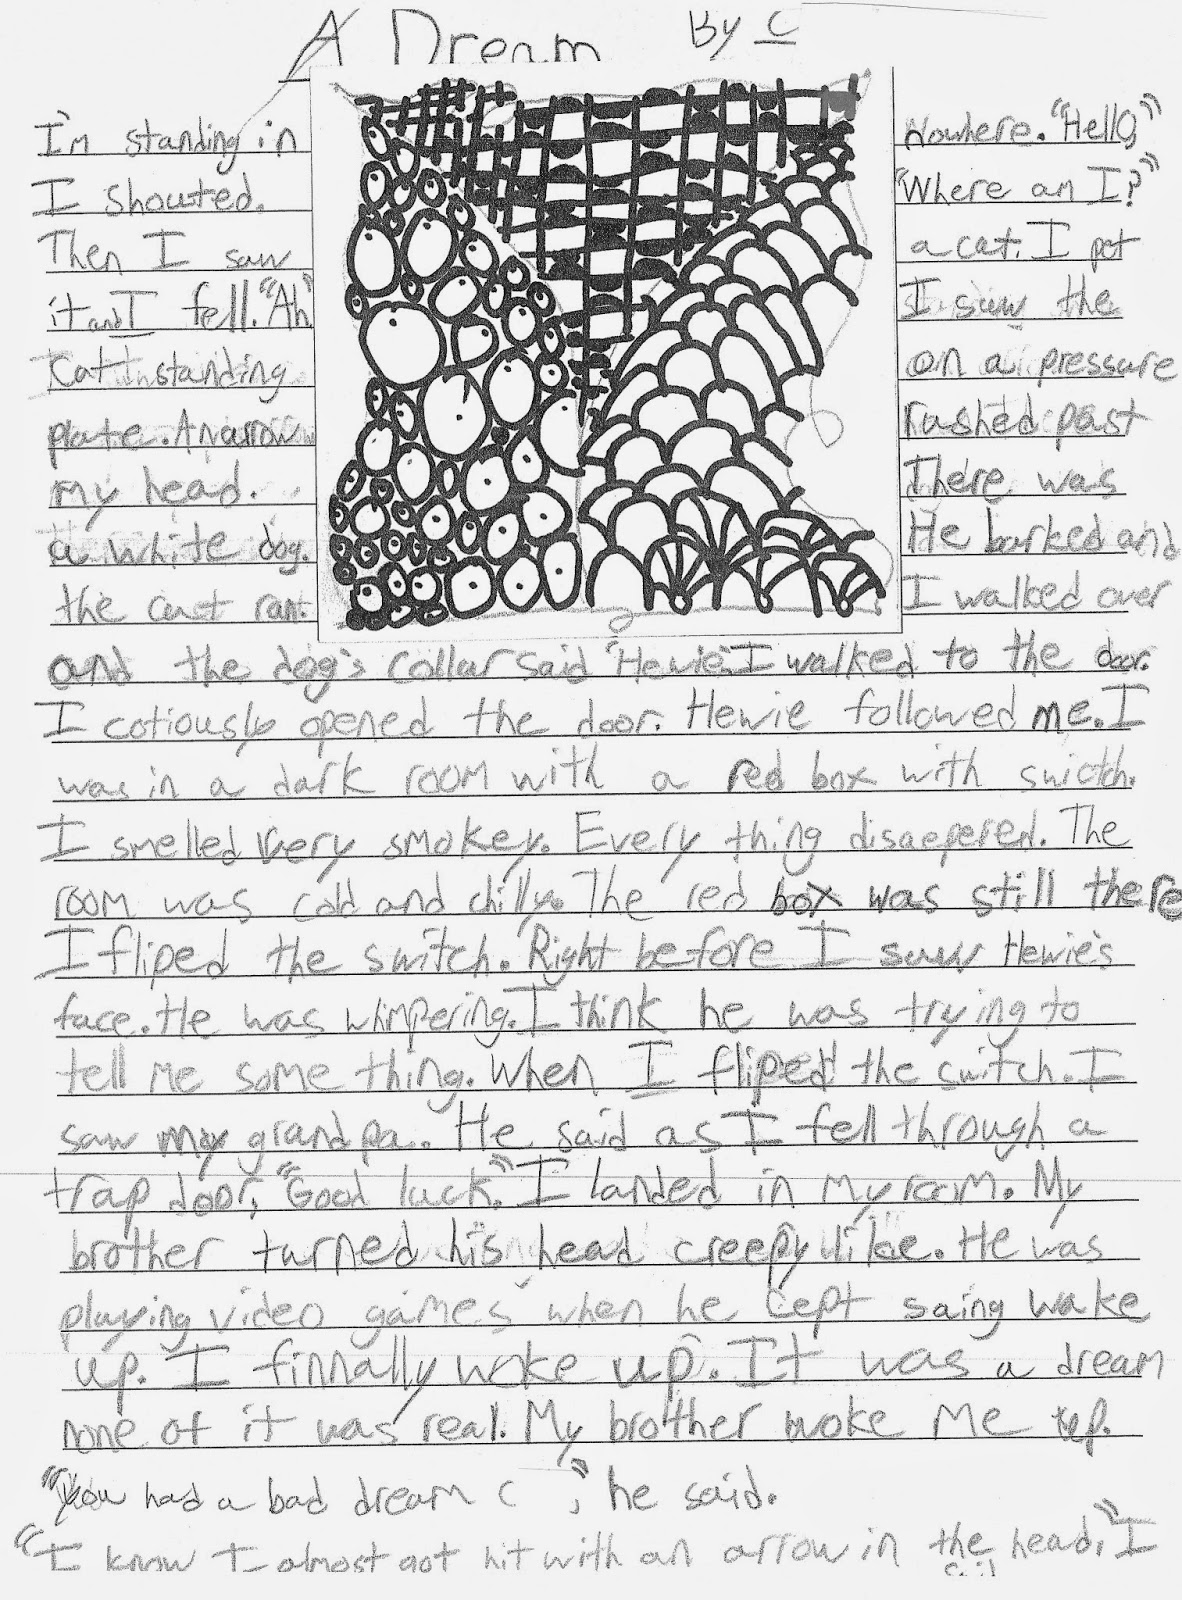 A Dream By C
I'm standing in Nowhere. "Hello,"
I shouted. "Where am I?"
Then I saw a cat. I pet
it and I fell. "Ah" I saw the
cat standing on a pressure
plate. An arrow rushed past
my head. There was
a white dog. He barked and
the cat ran. I walked over
and the dog's collar said "Hewie". I walked to the door.
I cotiously opened the door. Hewie followed me. I
was in a dark room with a red box with swictch.
I smelled very smokey. Every thing disaepered. The
room was cold and chilly. The red box was still there
I fliped the switch. Right before I saw Hewie's
face. He was whimpering. I think he was trying to
tell me some thing. When I fliped the switch. I
saw my grandpa. He said as I fell through a
trap door, "Good luck." I landed in my room. My
brother turned his head creepy like. He was
playing video games when he cept saing wake
up. I finnally woke up. It was a dream
none of it was real. My brother woke me up.
"You had a bad dream C ", he said.
"I know I almost got hit with an arrow in the head," I